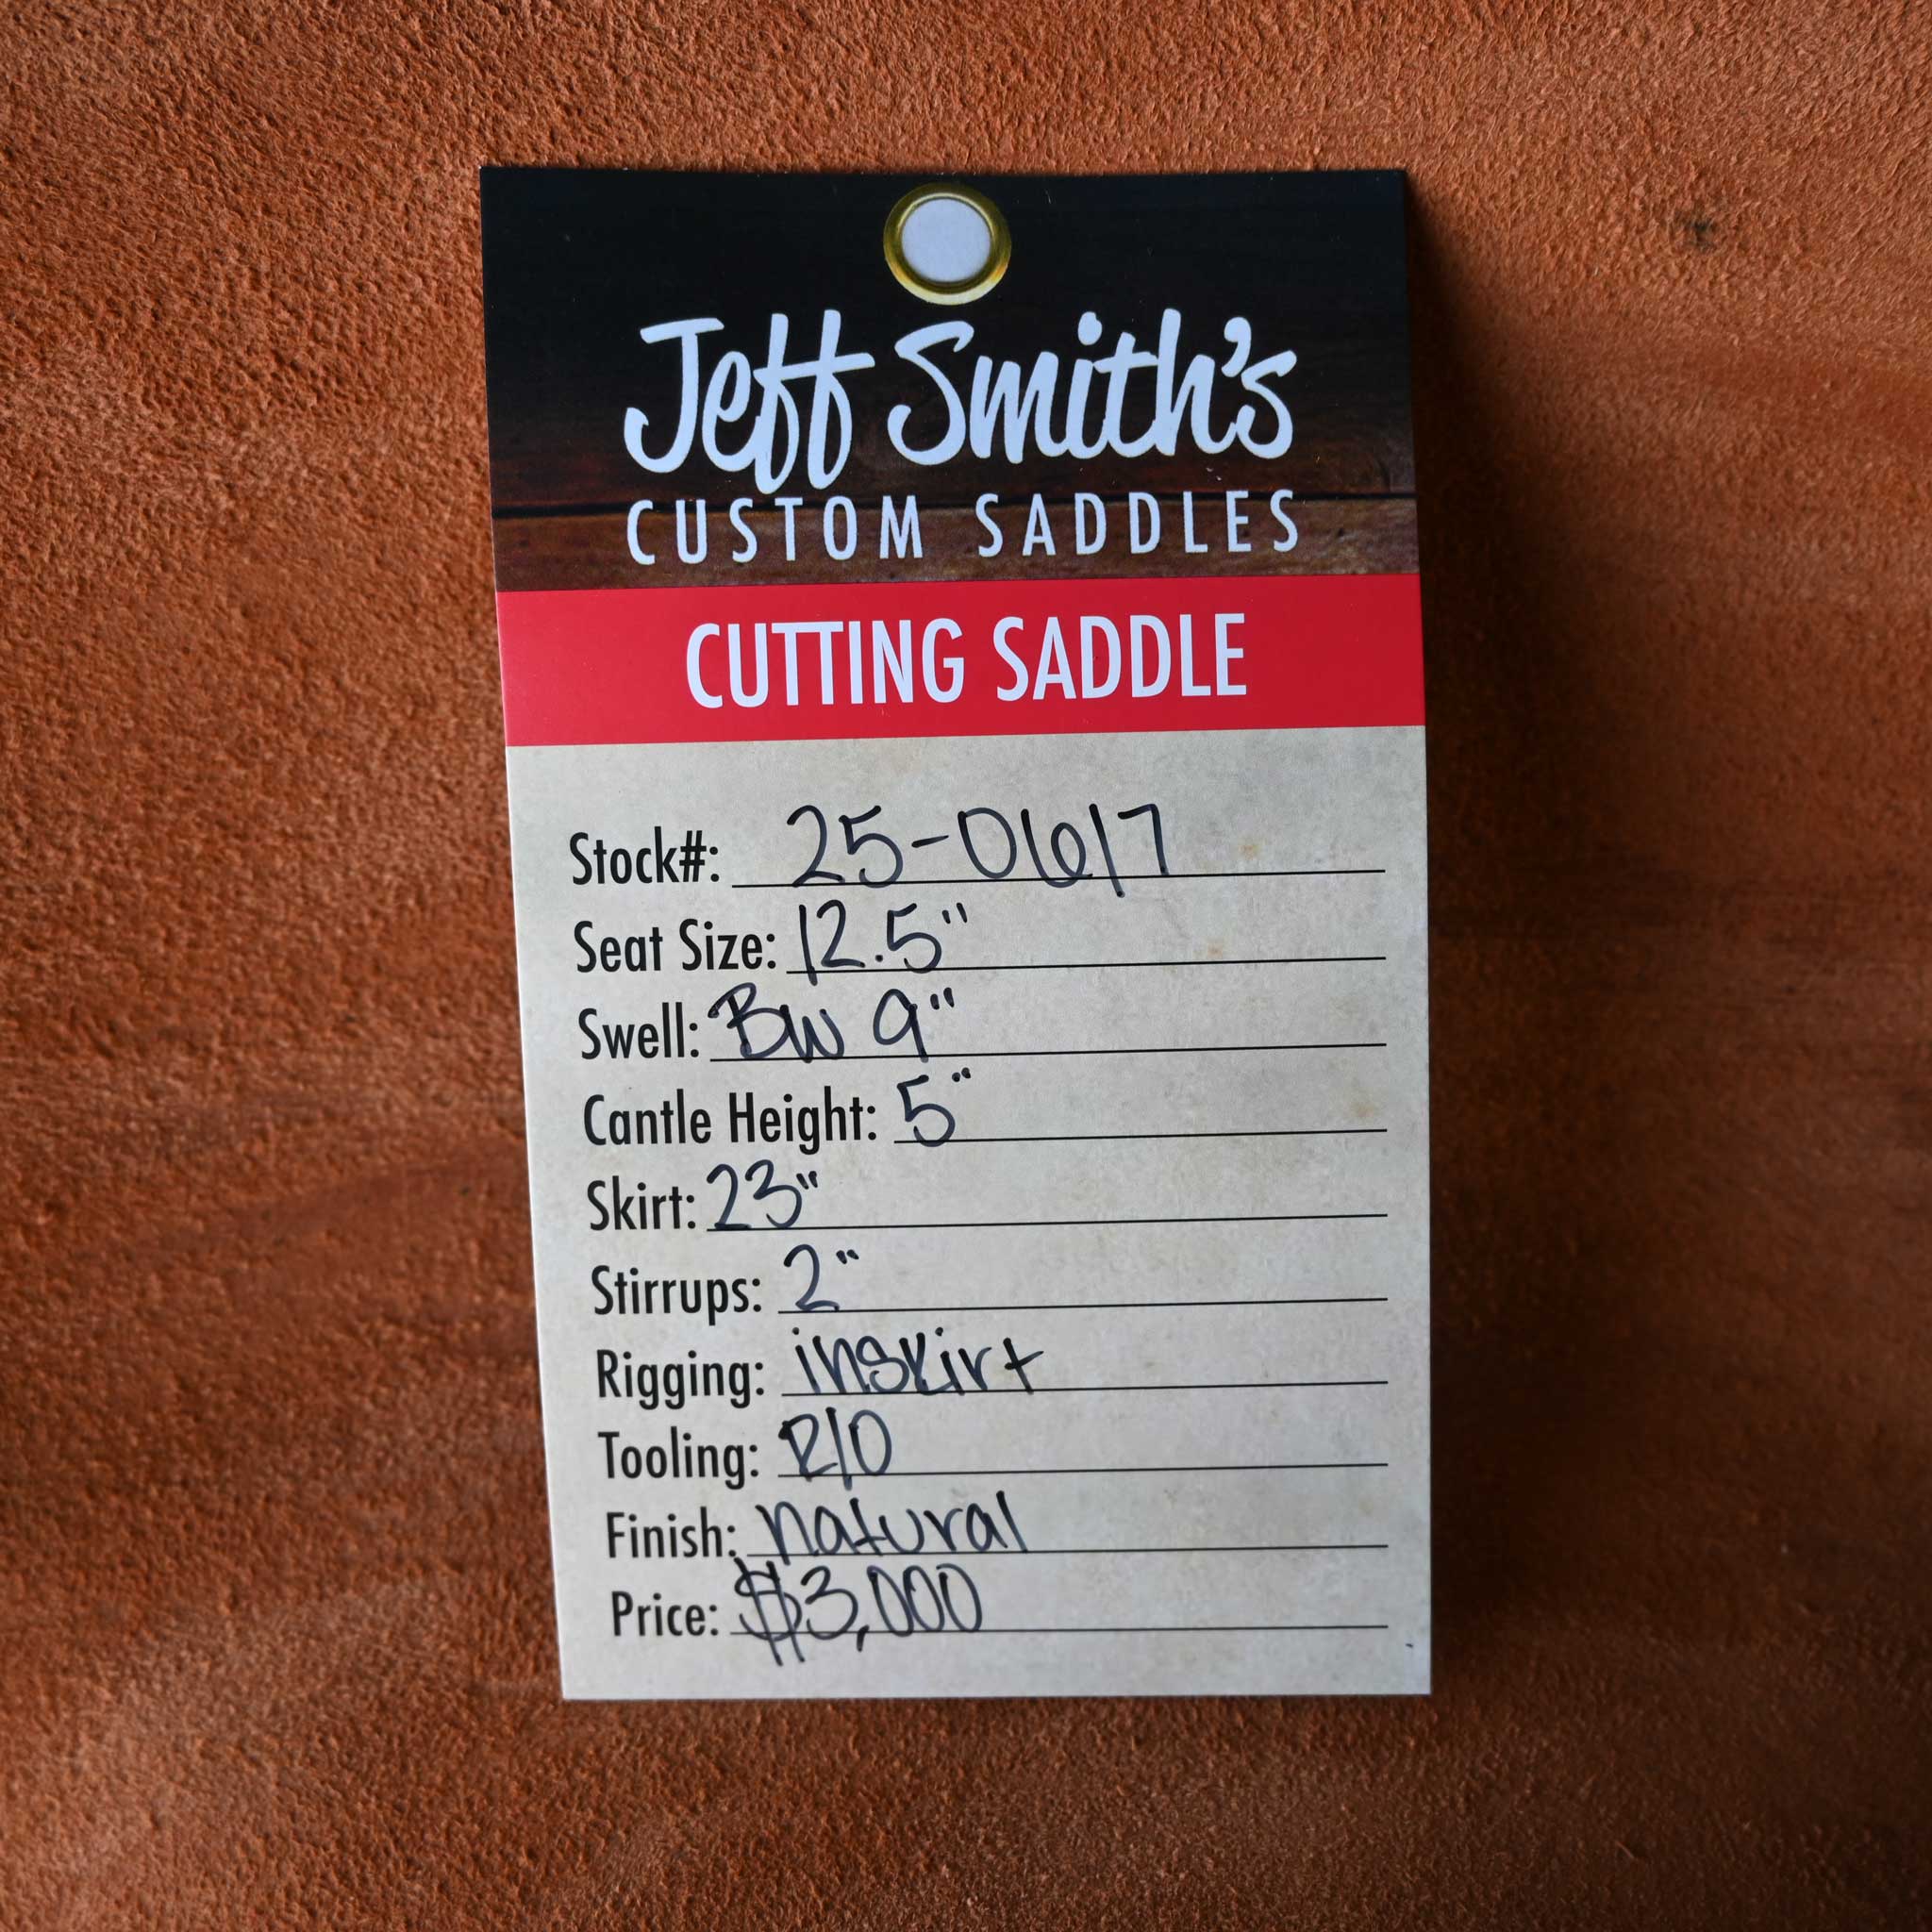 Jeff Smith's
CUSTOM SADDLES
CUTTING SADDLE
Stock#: 25-0617
Seat Size: 12.5"
Swell: BW 9"
Cantle Height: 5"
Skirt: 23"
Stirrups: 2"
Rigging: inskirt
Tooling: R/O
Finish: natural
Price: $3,000